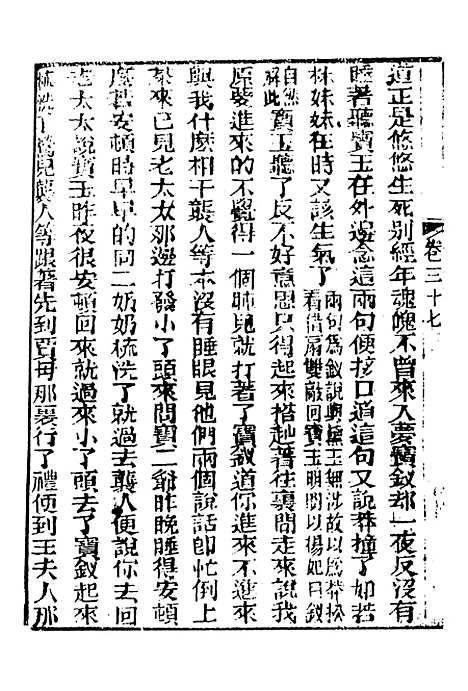 卷三十七
道正是悠悠生死别經年魂魄不曾來入夢寶釵却一夜反沒有
睡著聽寶玉在外邊念這兩句便接口道這句又說莽撞了如若
林妹妹在時又該生氣了
兩句爲釵說與黛玉無涉故以爲莽撞
看借扇雙敲回寶玉明問以楊妃曰釵
自然解此
寶玉聽了反不好意思只得起來搭赸著往裏間走來說我
原要進來的不覺得一個盹兒就打著了寶釵道你進來不進來
與我什麽相干襲人等本沒有睡眼見他們兩個說話卽忙倒上
茶來已見老太太那邊打發小丫頭來問寶二爺昨晚睡得安頓
麽若安頓時早早的同二奶奶梳洗了就過去襲人便說你去回
老太太說寶玉昨夜很安頓回來就過來小丫頭去了寶釵起來
梳洗了鶯兒襲人等跟著先到賈母那裏行了禮便到王夫人那